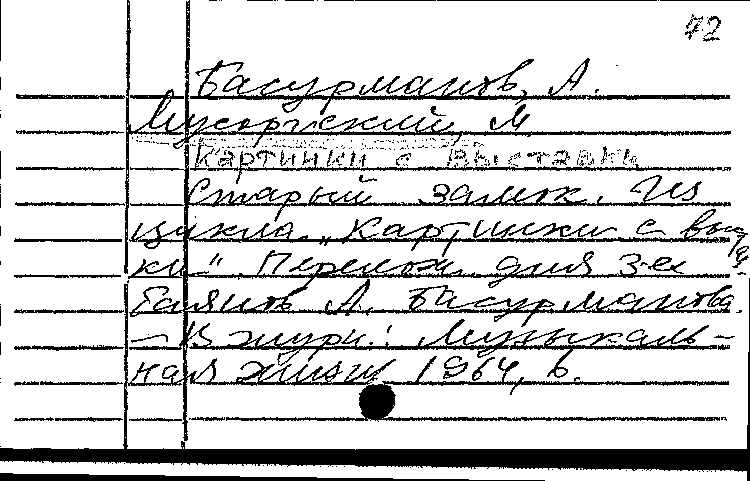 72
Басурманов, А.
Мусоргский, М.
Картинки с выставки
Старый замок. Из
цикла „Картинки с выстав-
ки". Перелож. для 3-ех
баянов А. Басурманова.
— В журн.: Музыкаль-
ная жизнь 1964, 6.